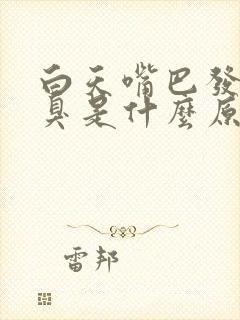 白天嘴巴發
臭是什麼原
雷邦